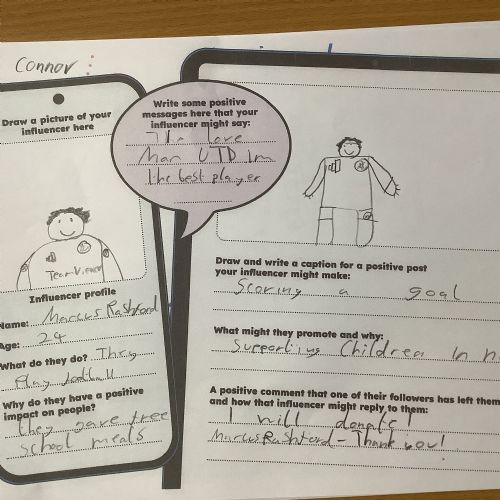 Connor :
Draw a picture of your
influencer here
TeamViewer
Influencer profile
Name: Marcus Rashford
Age: 24
What do they do? They
Play football
Why do they have a positive
impact on people?
they gave free
school meals
Write some positive
messages here that your
influencer might say:
I love
Man UTD Im
the best player
Draw and write a caption for a positive post
your influencer might make:
Scoring a goal
What might they promote and why:
Supporting Children In n
A positive comment that one of their followers has left them
and how that influencer might reply to them:
I will donate!
Marcus Rashford - Thank you!